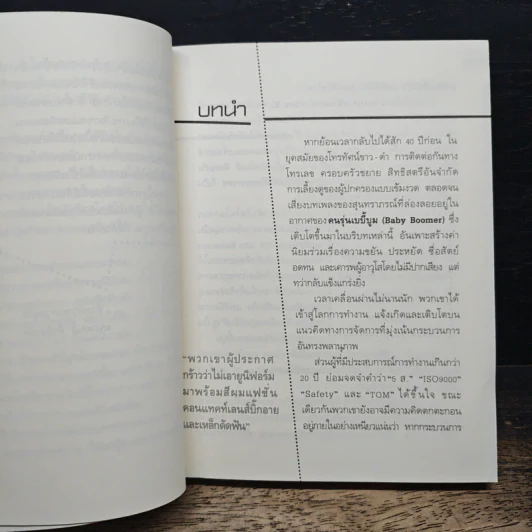 บทนำ
หากย้อนเวลากลับไปได้สัก 40 ปีก่อน ใน
ยุคสมัยของโทรทัศน์ขาว-ดำ การติดต่อกันทาง
โทรเลข ครอบครัวขยาย สิทธิสตรีอันจำกัด
การเลี้ยงดูของผู้ปกครองแบบเข้มงวด ตลอดจน
เสียงบทเพลงของสุนทราภรณ์ที่ล่องลอยอยู่ใน
อากาศของ คนรุ่นเบบี้บูม (Baby Boomer) ซึ่ง
เติบโตขึ้นมาในบริบทเหล่านี้ อันเพาะสร้างค่า
นิยมร่วมเรื่องความขยัน ประหยัด ซื่อสัตย์
อดทน และเคารพผู้อาวุโสโดยไม่มีปากเสียง แต่
ทว่ากลับแข็งแกร่งยิ่ง
เวลาเคลื่อนผ่านไม่นานนัก พวกเขาได้
เข้าสู่โลกการทำงาน แจ้งเกิดและเติบโตบน
แนวคิดทางการจัดการที่มุ่งเน้นกระบวนการ
อันทรงพลานุภาพ
ส่วนผู้ที่มีประสบการณ์การทำงานเกินกว่า
20 ปี ย่อมจดจำคำว่า "5 ส." "ISO9000"
"Safety" และ "TQM" ได้ขึ้นใจ ขณะ
เดียวกันพวกเขายังอาจมีความคิดตกตะกอน
อยู่ภายในอย่างเหนียวแน่นว่า หากกระบวนการ
"พวกเขาผู้ประกาศ
กร้าวว่าไม่เอายูนิฟอร์ม
มาพร้อมสีผมแฟชั่น
คอนแทคท์เลนส์บิ๊กอาย
และเหล็กดัดฟัน"